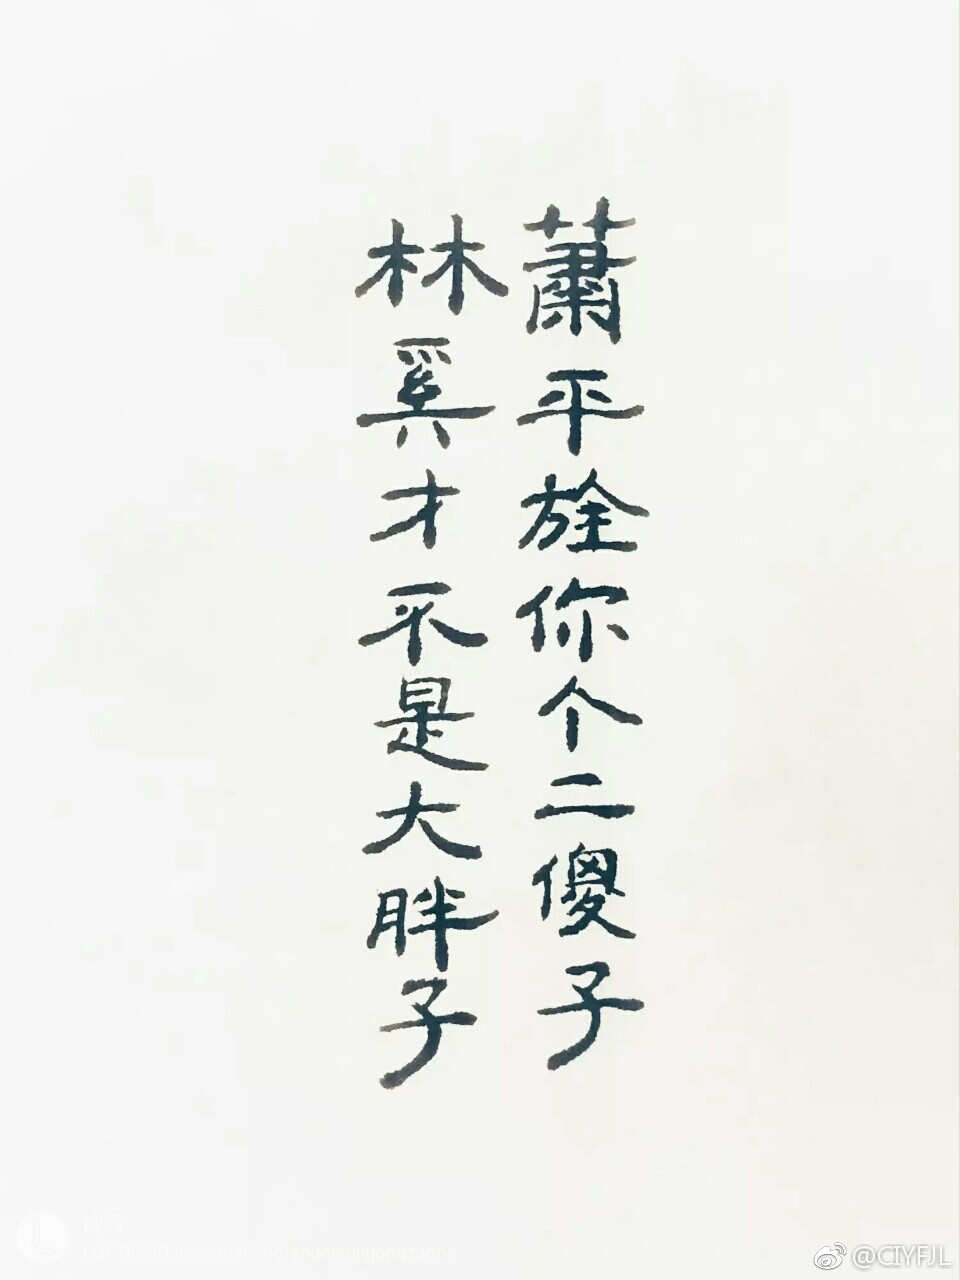 蕭平旌你个二傻子
林奚才不是大胖子
@CIYFJL